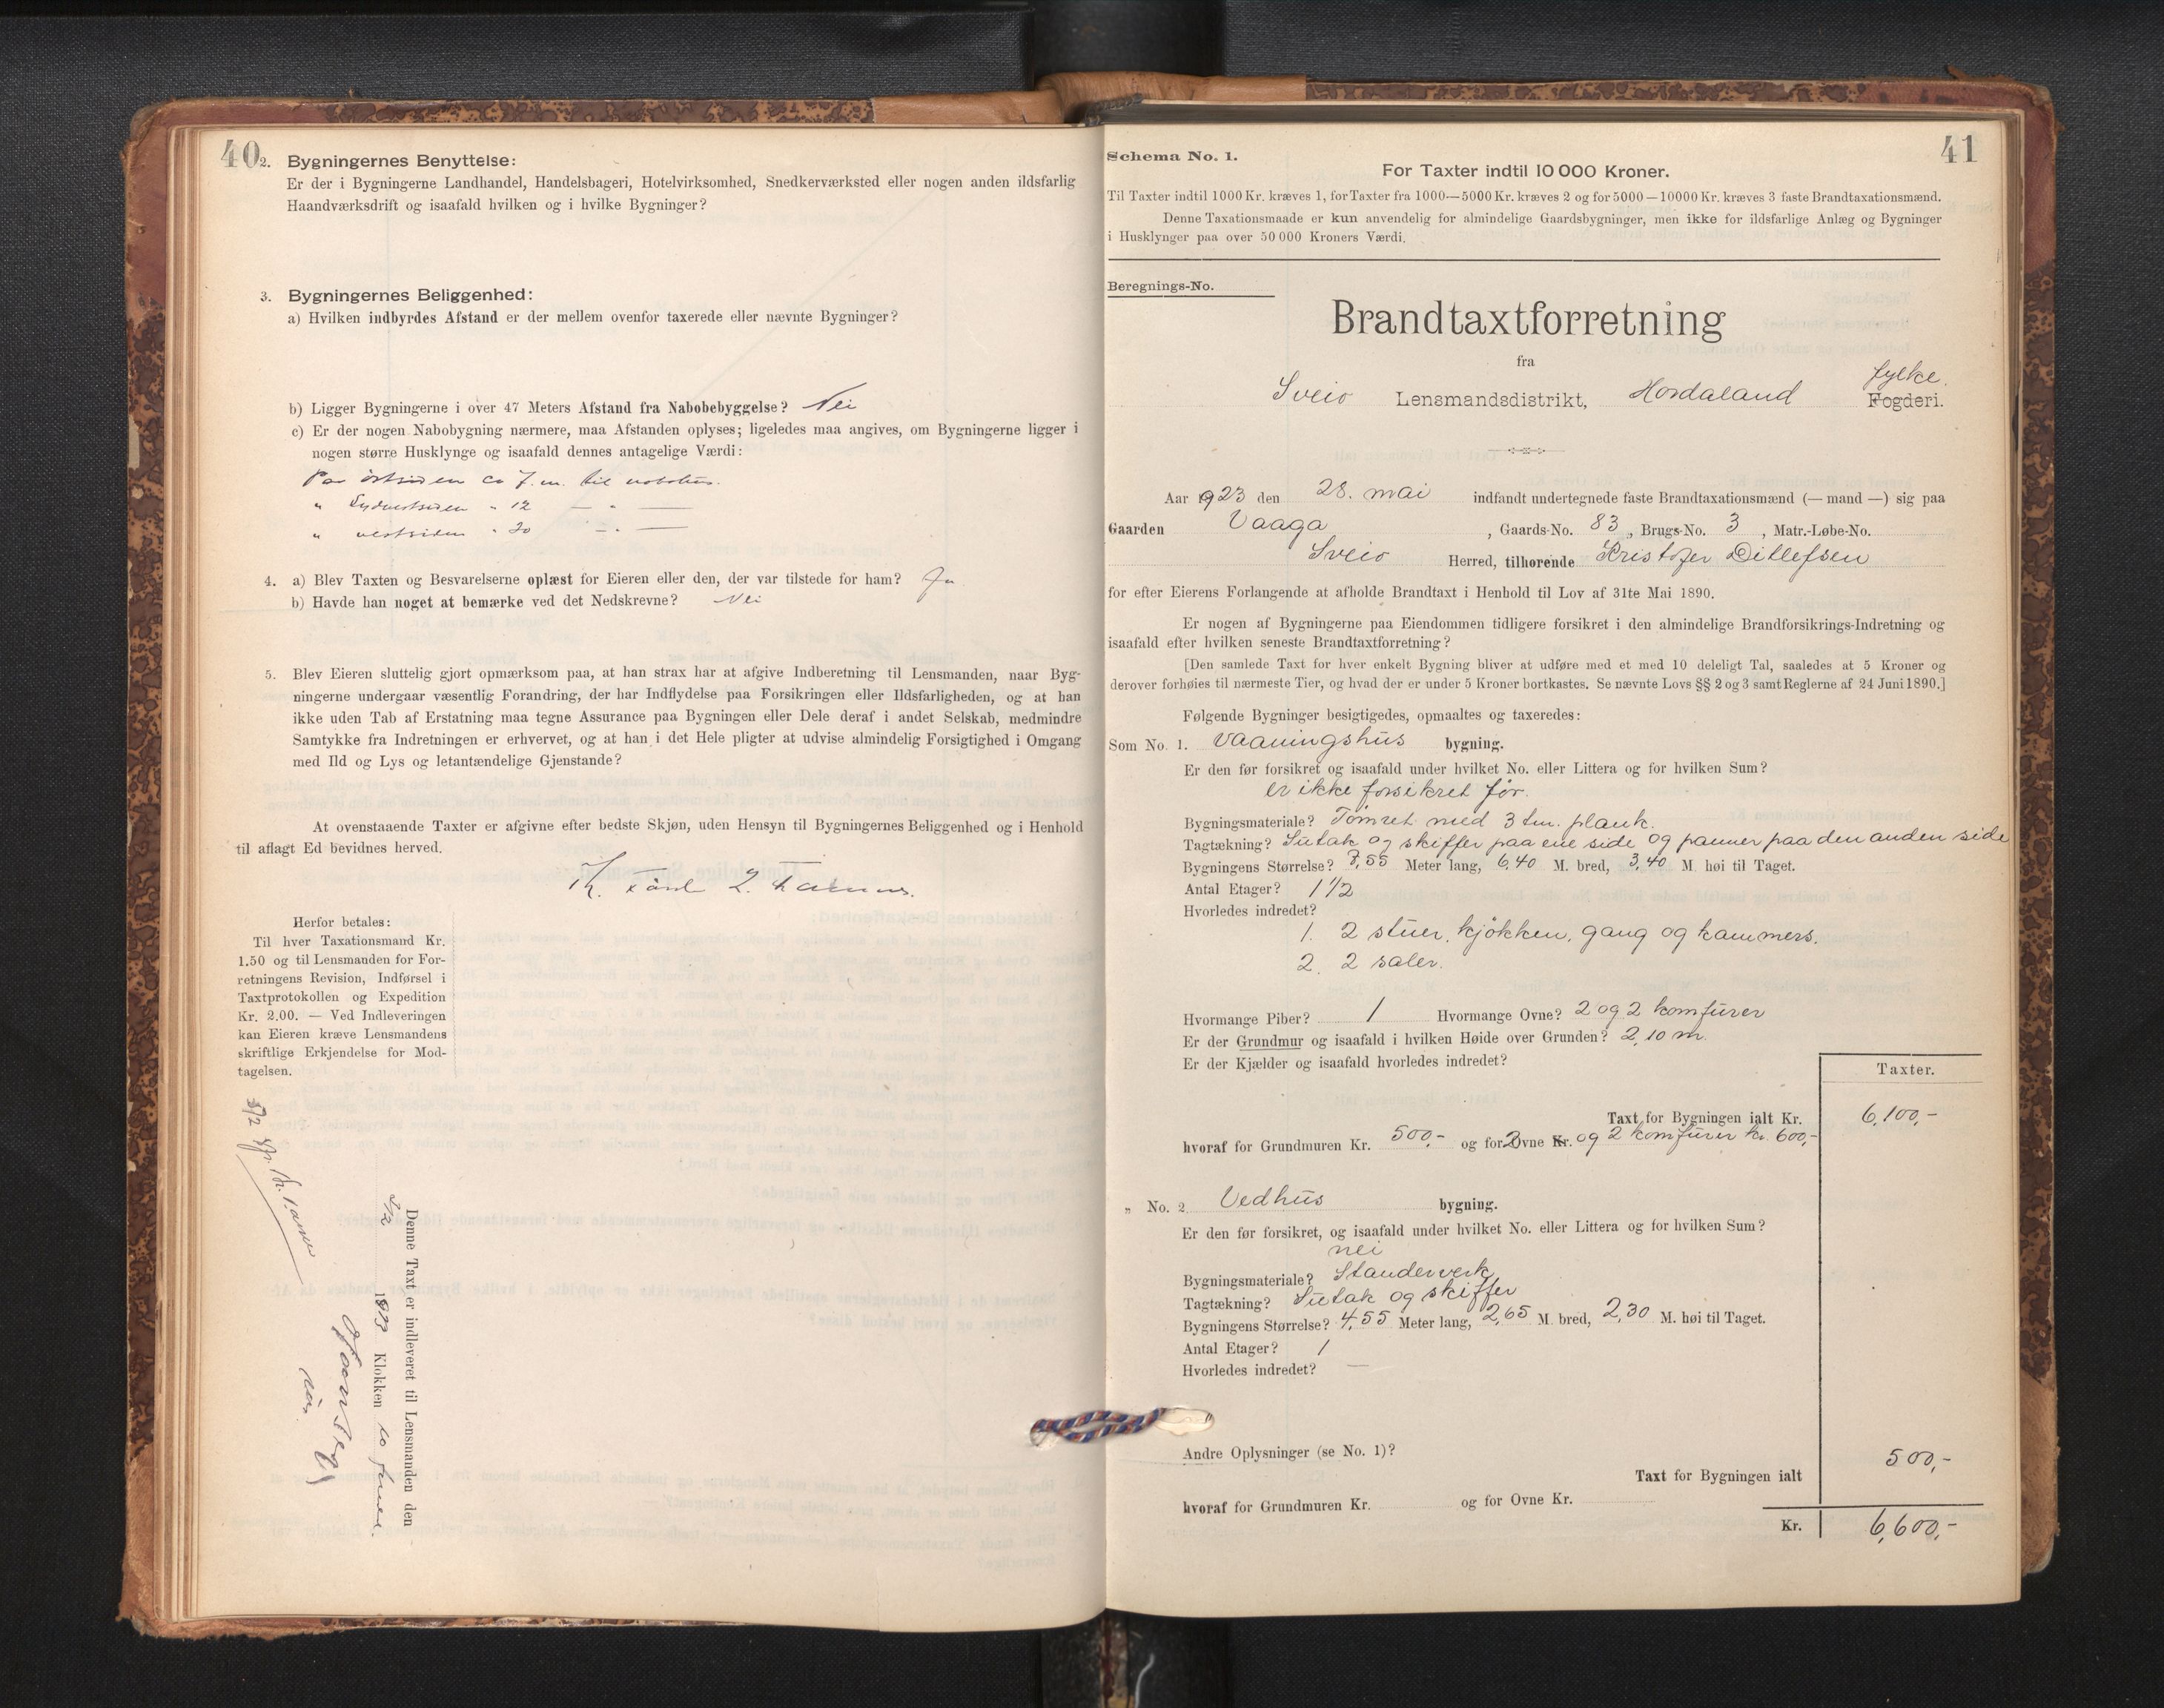 40
2. Bygningernes Benyttelse:
Er der i Bygningerne Landhandel, Handelsbageri, Hotelvirksomhed, Snedkerværksted eller nogen anden ildsfarlig
Haandværksdrift og isaafald hvilken og i hvilke Bygninger?
3. Bygningernes Beliggenhed:
a) Hvilken indbyrdes Afstand er der mellem ovenfor taxerede eller nævnte Bygninger?
b) Ligger Bygningerne i over 47 Meters Afstand fra Nabobebyggelse? Nei
c) Er der nogen Nabobygning nærmere, maa Afstanden oplyses; ligeledes maa angives, om Bygningerne ligger i
nogen større Husklynge og isaafald dennes antagelige Værdi:
Paa östsiden ca 7. m. til nabohus.
" Sydvestsiden " 12 — " —
" vestsiden " 20 — " —
4. a) Blev Taxten og Besvarelserne oplæst for Eieren eller den, der var tilstede for ham? Ja
b) Havde han noget at bemærke ved det Nedskrevne? Nei
5. Blev Eieren sluttelig gjort opmærksom paa, at han strax har at afgive Indberetning til Lensmanden, naar Byg-
ningerne undergaar væsentlig Forandring, der har Indflydelse paa Forsikringen eller Ildsfarligheden, og at han
ikke uden Tab af Erstatning maa tegne Assurance paa Bygningen eller Dele deraf i andet Selskab, medmindre
Samtykke fra Indretningen er erhvervet, og at han i det Hele pligter at udvise almindelig Forsigtighed i Omgang
med Ild og Lys og letantændelige Gjenstande?
At ovenstaaende Taxter er afgivne efter bedste Skjøn, uden Hensyn til Bygningernes Beliggenhed og i Henhold
til aflagt Ed bevidnes herved.
Herfor betales:
Til hver Taxationsmand Kr.
1.50 og til Lensmanden for For-
retningens Revision, Indførsel i
Taxtprotokollen og Expedition
Kr. 2.00. — Ved Indleveringen
kan Eieren kræve Lensmandens
skriftlige Erkjendelse for Mod-
tagelsen.
Denne Taxt er indleveret til Lensmanden den
Klokken 10
41
Schema No. 1.
For Taxter indtil 10 000 Kroner.
Til Taxter indtil 1000 Kr. kræves 1, for Taxter fra 1000—5000 Kr. kræves 2 og for 5000—10000 Kr. kræves 3 faste Brandtaxationsmænd.
Denne Taxationsmaade er kun anvendelig for almindelige Gaardsbygninger, men ikke for ildsfarlige Anlæg og Bygninger
i Husklynger paa over 50 000 Kroners Værdi.
Beregnings-No.
Brandtaxtforretning
fra
fylke.
Sveio Lensmandsdistrikt, Hordaland Fogderi.
Aar 1923 den 28. mai indfandt undertegnede faste Brandtaxationsmænd (— mand —) sig paa
Gaarden Vaaga, Gaards-No. 83, Brugs-No. 3, Matr.-Løbe-No.
Sveio Herred, tilhørende Kristofer Ditlefsen
for efter Eierens Forlangende at afholde Brandtaxt i Henhold til Lov af 31te Mai 1890.
Er nogen af Bygningerne paa Eiendommen tidligere forsikret i den almindelige Brandforsikrings-Indretning og
isaafald efter hvilken seneste Brandtaxtforretning?
[Den samlede Taxt for hver enkelt Bygning bliver at udføre med et med 10 deleligt Tal, saaledes at 5 Kroner og
derover forhøies til nærmeste Tier, og hvad der er under 5 Kroner bortkastes. Se nævnte Lovs §§ 2 og 3 samt Reglerne af 24 Juni 1890.]
Følgende Bygninger besigtigedes, opmaaltes og taxeredes:
Som No. 1. Vaaningshus bygning.
Er den før forsikret og isaafald under hvilket No. eller Littera og for hvilken Sum?
er ikke forsikret før.
Bygningsmateriale? Tømret med 3 tm. plank.
Tagtækning? Sutak og skiffer paa ene side og panner paa den anden side
Bygningens Størrelse? 7,55 Meter lang, 6,40 M. bred, 3,40 M. høi til Taget.
Antal Etager? 1 1/2
Hvorledes indredet?
1. 2 stuer, kjøkken, gang og kammers.
2. 2 saler.
Hvormange Piber? 1 Hvormange Ovne? 2 og 2 komfurer
Er der Grundmur og isaafald i hvilken Høide over Grunden? 2,10 m.
Er der Kjælder og isaafald hvorledes indredet?
Taxter.
Taxt for Bygningen ialt Kr. 6,100,-
hvoraf for Grundmuren Kr. 500,- og for 2 Ovne Kr. og 2 komfurer kr. 600,-
" No. 2. Vedhus bygning.
Er den før forsikret, og isaafald under hvilket No. eller Littera og for hvilken Sum?
nei
Bygningsmateriale? Standerverk
Tagtækning? Sutak og skiffer
Bygningens Størrelse? 4,55 Meter lang, 2,65 M. bred, 2,30 M. høi til Taget.
Antal Etager? 1
Hvorledes indredet? —
Andre Oplysninger (se No. 1)?
Taxt for Bygningen ialt 500,-
hvoraf for Grundmuren Kr. og for Ovne Kr.
Kr. 6,600,-